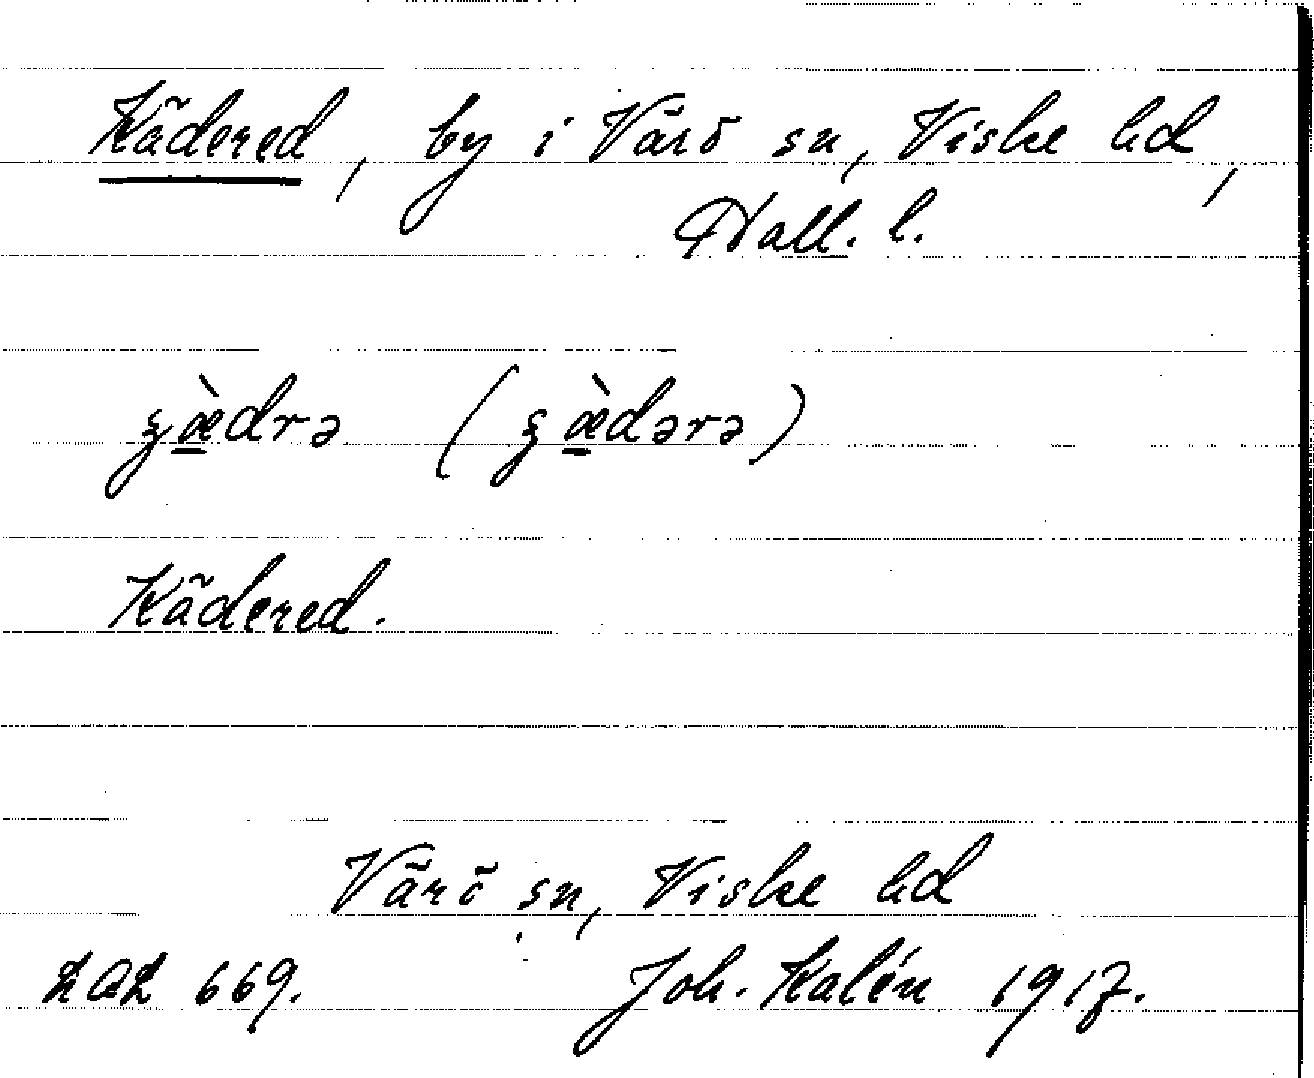 Kädered, by i Värö sn, Viske hd,
Hall. l.
ʒæ̀drə (ʒæ̀dərə)
Kädered.
Värö sn, Viske hd
LAL 669. Joh. Kalén 1917.